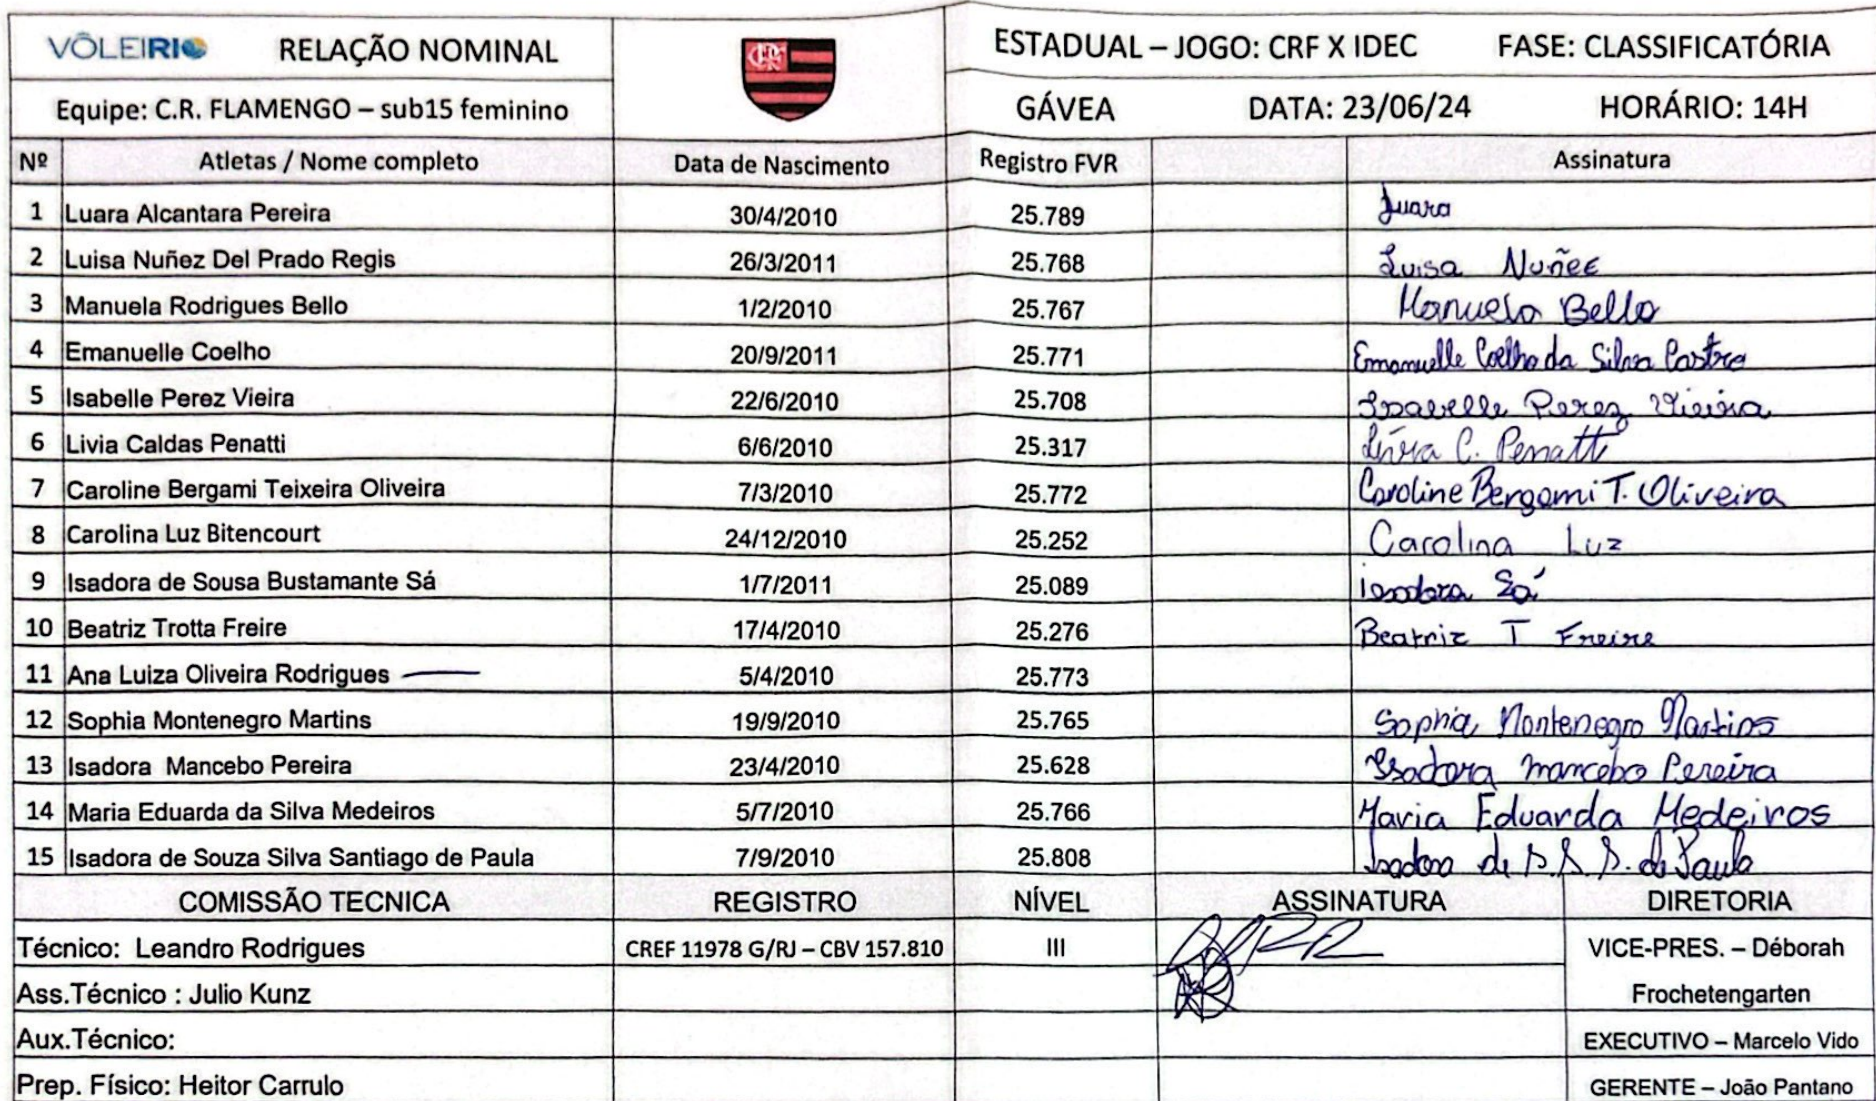 VÔLEIRIO RELAÇÃO NOMINAL ESTADUAL – JOGO: CRF X IDEC FASE: CLASSIFICATÓRIA
Equipe: C.R. FLAMENGO – sub15 feminino GÁVEA DATA: 23/06/24 HORÁRIO: 14H
Nº Atletas / Nome completo Data de Nascimento Registro FVR Assinatura
1 Luara Alcantara Pereira 30/4/2010 25.789 Luara
2 Luisa Nuñez Del Prado Regis 26/3/2011 25.768 Luisa Nuñez
3 Manuela Rodrigues Bello 1/2/2010 25.767 Manuela Bello
4 Emanuelle Coelho 20/9/2011 25.771 Emanuelle Coelho da Silva Castro
5 Isabelle Perez Vieira 22/6/2010 25.708 Isabelle Perez Vieira
6 Livia Caldas Penatti 6/6/2010 25.317 Lívia C. Penatti
7 Caroline Bergami Teixeira Oliveira 7/3/2010 25.772 Caroline Bergami T. Oliveira
8 Carolina Luz Bitencourt 24/12/2010 25.252 Carolina Luz
9 Isadora de Sousa Bustamante Sá 1/7/2011 25.089 Isadora Sá
10 Beatriz Trotta Freire 17/4/2010 25.276 Beatriz T Freire
11 Ana Luiza Oliveira Rodrigues 5/4/2010 25.773
12 Sophia Montenegro Martins 19/9/2010 25.765 Sophia Montenegro Martins
13 Isadora Mancebo Pereira 23/4/2010 25.628 Isadora Mancebo Pereira
14 Maria Eduarda da Silva Medeiros 5/7/2010 25.766 Maria Eduarda Medeiros
15 Isadora de Souza Silva Santiago de Paula 7/9/2010 25.808 Isadora de S. S. S. de Paula
COMISSÃO TECNICA REGISTRO NÍVEL ASSINATURA DIRETORIA
Técnico: Leandro Rodrigues CREF 11978 G/RJ – CBV 157.810 III VICE-PRES. – Déborah
Ass.Técnico : Julio Kunz Frochetengarten
Aux.Técnico: EXECUTIVO – Marcelo Vido
Prep. Físico: Heitor Carrulo GERENTE – João Pantano